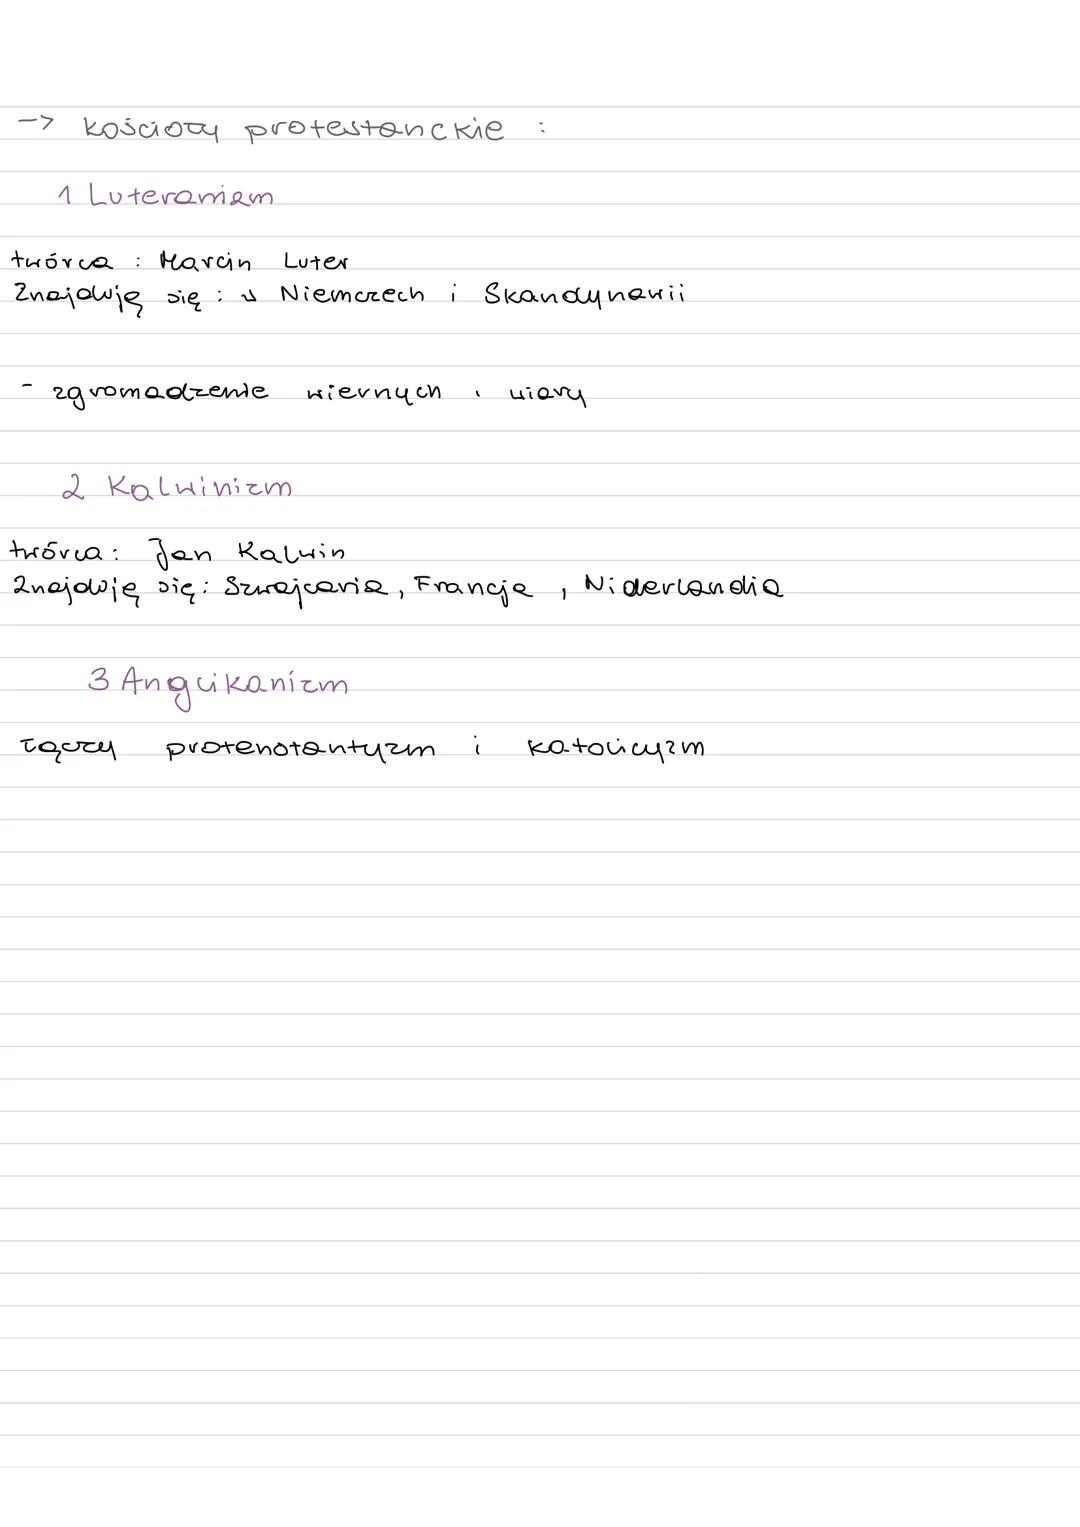 -> kościoły protestanckie :
1 Luteranizm
twórca : Marcin Luter
Znajdują się : w Niemczech i Skandynawii
- zgromadzenie wiernych , wiary
2 Kalwinizm
twórca : Jan Kalwin
Znajdują się : Szwajcaria , Francja , Niderlandia
3 Anglikanizm
Łączy protenstantyzm i katolicyzm